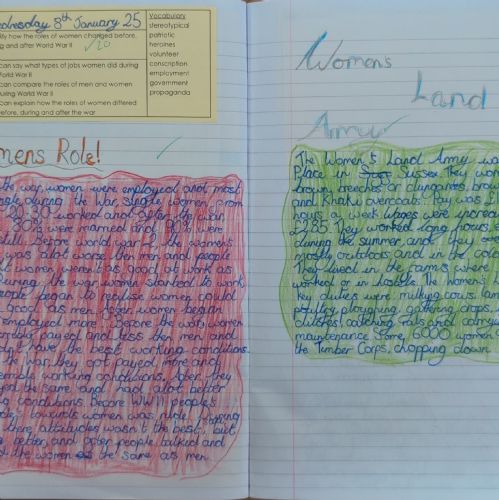 Wednesday 8th January 25
ify how the roles of women changed before,
g and after World War II
can say what types of jobs women did during
World War II
can compare the roles of men and women
uring World War II
can explain how the roles of women differed
before, during and after the war
Vocabulary
stereotypical
patriotic
heroines
volunteer
conscription
employment
government
propaganda
mens Role!
the war, women were employed and most
single, during the war, single women from
20-30 worked and after the war
80% were married and 90% were
still. Before world war 2, the women's
was alot worse then men and people
t women weren't as good at work as
During the war women started to work
people began to realise women could
good as men. After women began
employed more. Before the war, women
payed and less then men and
n't have the best working conditions.
war they got payed more and
working conditions. After they
the same and had alot better
g conditions. Before WWII people's
towards women was rude. During
there attitudes wasn't the best, but
better, and after people talked and
the women as the same as men.
Womens
Land
Army
The Women's Land Army wa
Place in Sussex. They wore
brown breeches or dungarees, bro
and khaki overcoats. Pay was £1
hours a week. Wages were increa
£2.85. They worked long hours, e
during the summer and they we
mostly outdoors and in the co
They lived in the farms where
worked or in hostels. The women's l
key duties were milking cows, lam
poultry, ploughing, gathering crops,
ditches, catching rats and carrying
maintenance. Some 6000 women
the Timber Corps, chopping down